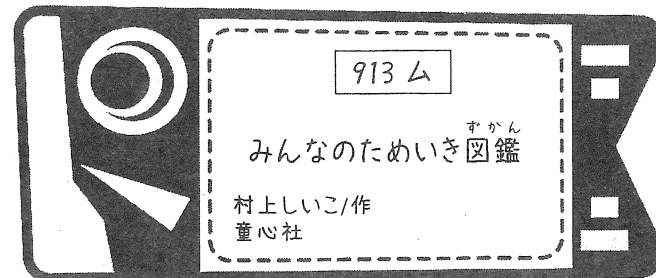 913 ム
みんなのためいき図鑑
ずかん
村上しいこ/作
童心社